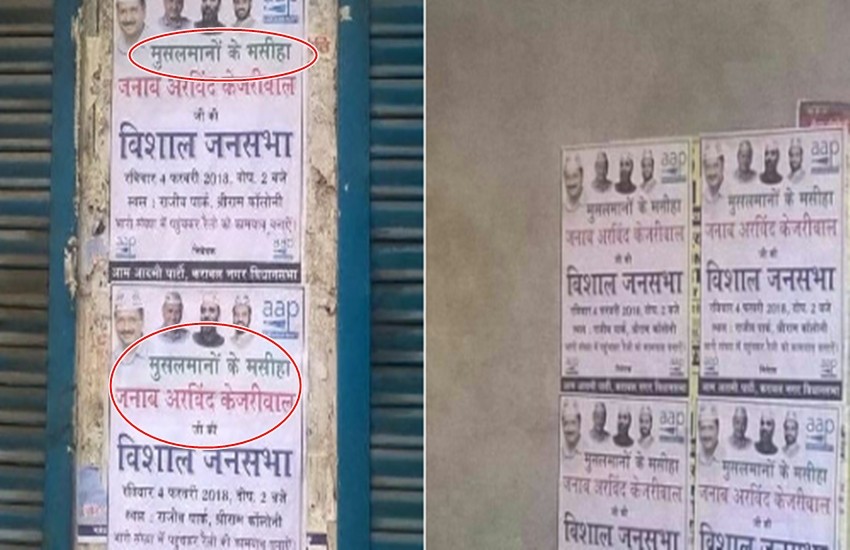 मुसलमानों के मसीहा
जनाब अरविंद केजरीवाल
जी की
विशाल जनसभा
रविवार 4 फरवरी 2018, दोप. 2 बजे
स्थल : राजीव पार्क, श्रीराम कॉलोनी
भारी संख्या में पहुंचकर रैली को कामयाब बनाएँ।
निवेदक
आम आदमी पार्टी, करावल नगर विधानसभा
aap
मुसलमानों के मसीहा
जनाब अरविंद केजरीवाल
जी की
विशाल जनसभा
रविवार 4 फरवरी 2018, दोप. 2 बजे
स्थल : राजीव पार्क, श्रीराम कॉलोनी
भारी संख्या में पहुंचकर रैली को कामयाब बनाएँ।
aap
मुसलमानों के मसीहा
जनाब अरविंद केजरीवाल
जी की
विशाल जनसभा
रविवार 4 फरवरी 2018, दोप. 2 बजे
स्थल : राजीव पार्क, श्रीराम कॉलोनी
भारी संख्या में पहुंचकर रैली को कामयाब बनाएँ।
निवेदक
आम आदमी पार्टी, करावल नगर विधानसभा
aap
मुसलमानों के मसीहा
जनाब अरविंद केजरीवाल
जी की
विशाल जनसभा
रविवार 4 फरवरी 2018, दोप. 2 बजे
स्थल : राजीव पार्क, श्रीराम कॉलोनी
भारी संख्या में पहुंचकर रैली को कामयाब बनाएँ।
निवेदक
आम आदमी पार्टी, करावल नगर विधानसभा
aap
मुसलमानों के मसीहा
जनाब अरविंद केजरीवाल
जी की
विशाल जनसभा
aap
मुसलमानों के मसीहा
जनाब अरविंद केजरीवाल
जी की
विशाल जनसभा